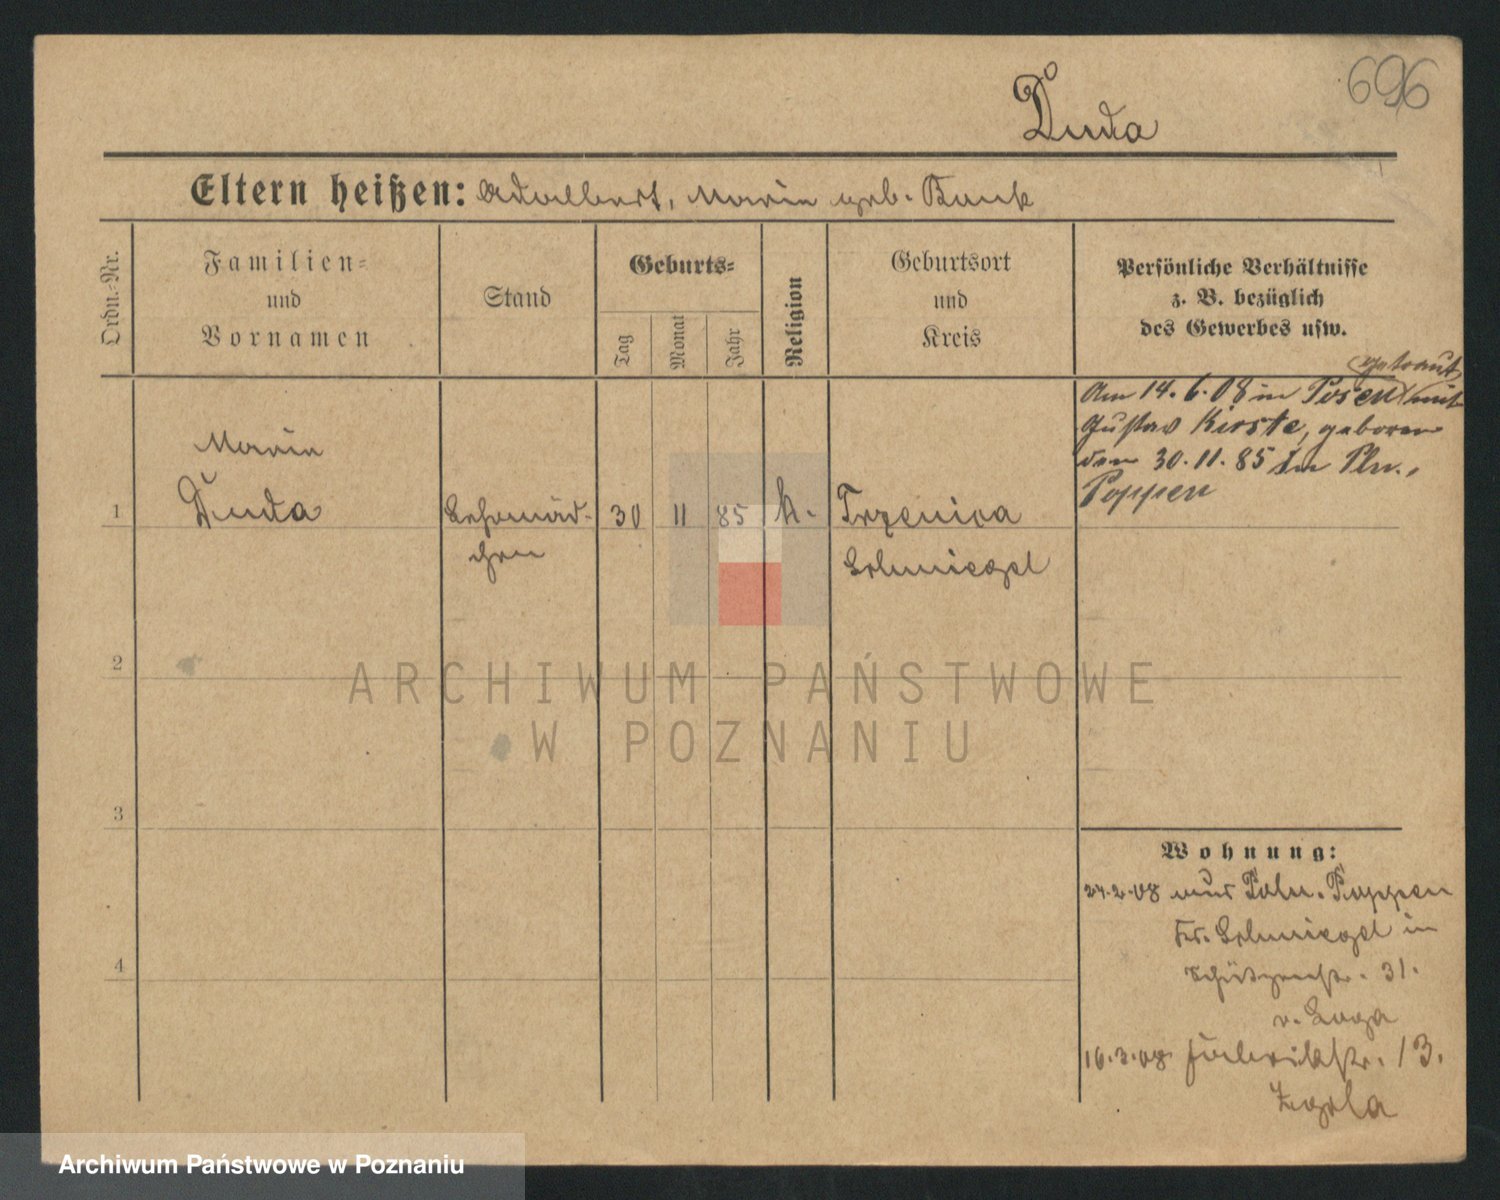 696
Duda
Eltern heißen: Adalbert, Marie geb. Bank
Ordn.-Nr.
Familien-
und
Vornamen
Stand
Geburts-
Tag
Monat
Jahr
Religion
Geburtsort
und
Kreis
Persönliche Verhältnisse
z. B. bezüglich
des Gewerbes usw.
getraut
Am 14.6.08 in Posen mit
Gustav Kirste, geboren
den 30.11.85 in Pln.,
Poppen
1
Marie
Duda
Lehrmäd-
chen
30
11
85
k.
Trzenica
Schmiegel
2
3
4
Wohnung:
24.2.08 aus Poln. Poppen
Kr. Schmiegel in
Schützenstr. 31.
v. Loga
16.3.08 Fabrikstr. 13.
Zgola
ARCHIWUM PAŃSTWOWE
W POZNANIU
Archiwum Państwowe w Poznaniu